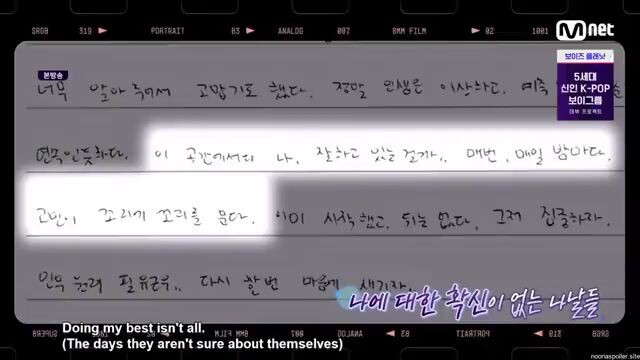 SRGB 319 PORTRAIT B3 ANALOG 007 8MM FILM 02 1001
Mnet
본방송
보이즈 플래닛
5세대
신인 K-POP
보이그룹
데뷔 프로젝트
너무 알아주어서 고맙기도 했다. 정말 인생은 이상하고, 예측
연속인듯하다. 이 공간에서의 나, 잘하고 있는 걸까.. 매번, 매일 밤마다.
고민이 꼬리에 꼬리를 문다. 이미 시작했고, 뒤는 없다, 그저 집중하자.
다시 한번 마음에 새기자.
나에 대한 확신이 없는 나날들
Doing my best isn't all.
(The days they aren't sure about themselves)
noonaspoiler.site